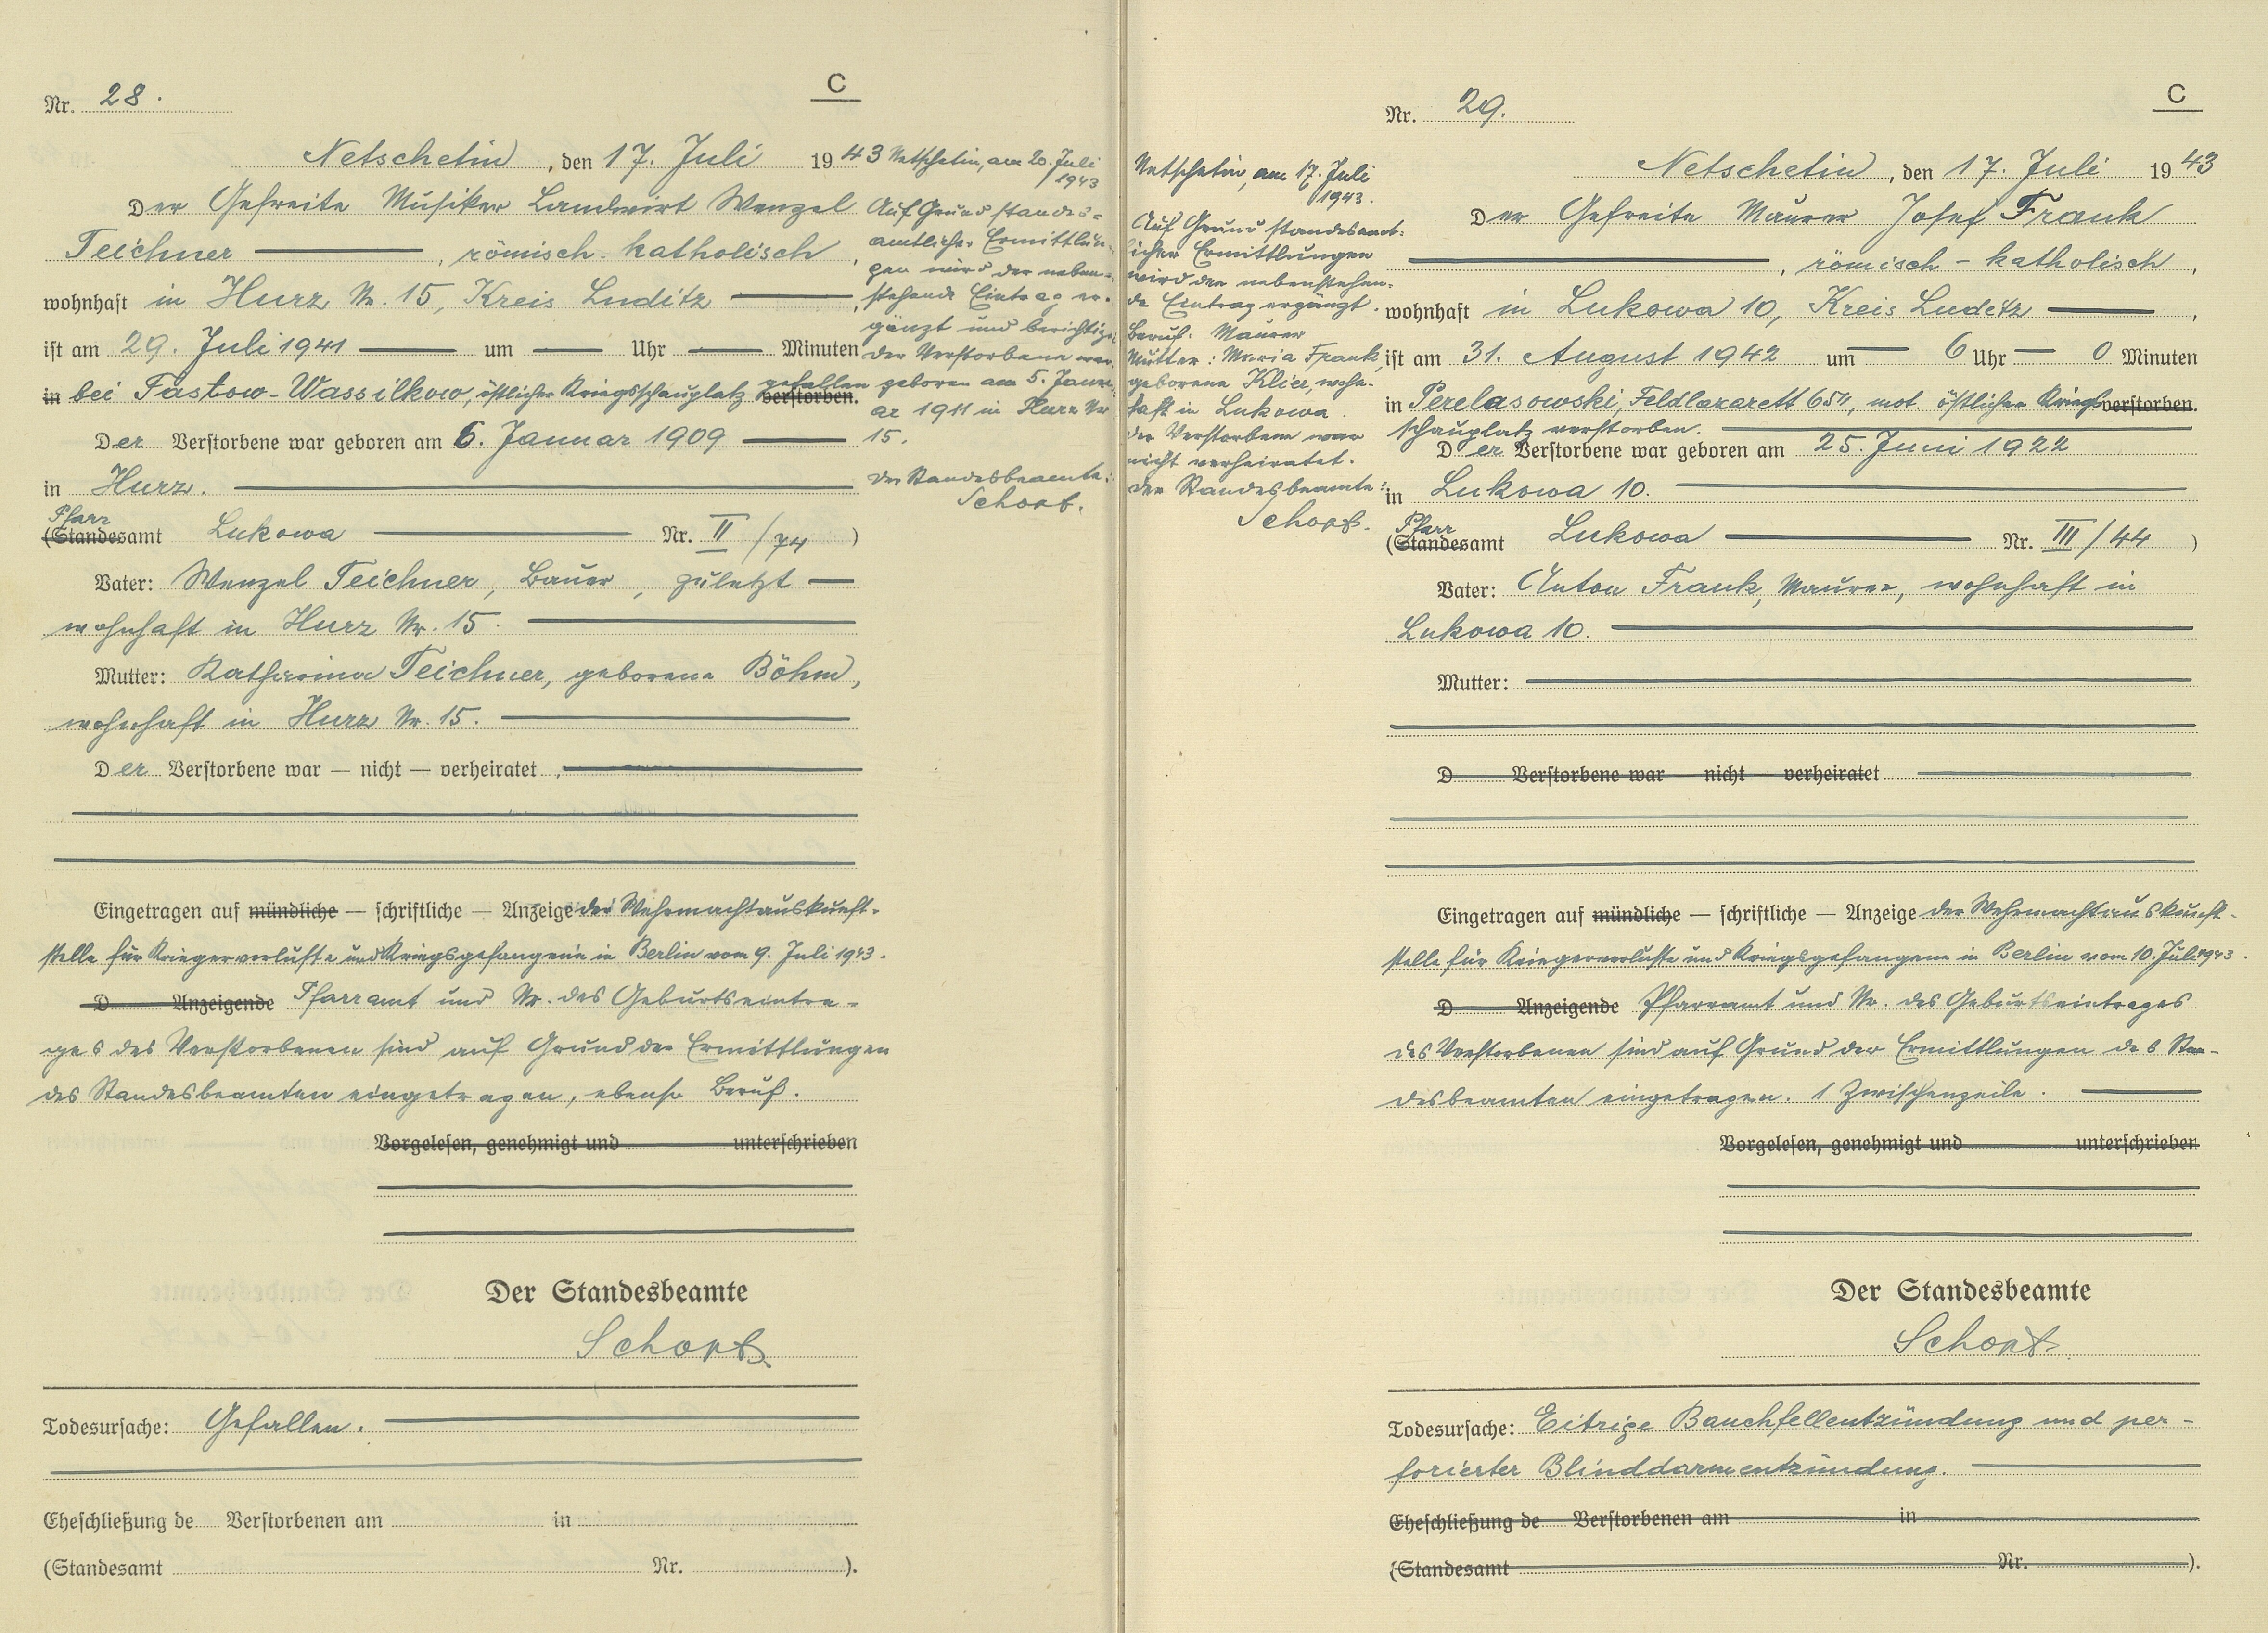 C
Nr. 28.
Netschetin, den 17. Juli 1943
Der Gefreite Musiker Landwirt Wenzel
Teichner, römisch-katholisch,
wohnhaft in Hurz Nr. 15, Kreis Luditz,
ist am 29. Juli 1941 um Uhr Minuten
in bei Fastow-Wassilkow, östlicher Kriegsschauplatz gefallen verstorben.
Der Verstorbene war geboren am 6. Januar 1909
in Hurz.
Pfarr
(Standesamt Lukowa Nr. II/74)
Vater: Wenzel Teichner, Bauer, zuletzt
wohnhaft in Hurz Nr. 15.
Mutter: Katharina Teichner, geborene Böhm,
wohnhaft in Hurz Nr. 15.
Der Verstorbene war — nicht — verheiratet.
Eingetragen auf mündliche — schriftliche — Anzeige der Wehrmachtauskunft-
stelle für Kriegerverluste und Kriegsgefangene in Berlin vom 9. Juli 1943.
D Anzeigende Pfarramt und Nr. des Geburtseintra-
ges des Verstorbenen sind auf Grund der Ermittlungen
des Standesbeamten eingetragen, ebenso Beruf.
Vorgelesen, genehmigt und unterschrieben
Der Standesbeamte
Schort
Todesursache: Gefallen.
Eheschließung de Verstorbenen am in
(Standesamt Nr. ).
Netschetin, am 20. Juli
1943
Auf Grund standes-
amtlicher Ermittlun-
gen wird der neben-
stehende Eintrag er-
gänzt und berichtigt
Der Verstorbene war
geboren am 5. Janu-
ar 1911 in Hurz Nr
15.
Der Standesbeamte:
Schort.
Netschetin, am 17. Juli
1943.
Auf Grund standesamt-
licher Ermittlungen
wird der nebenstehen-
de Eintrag ergänzt.
Beruf: Maurer
Mutter: Maria Frank,
geborene Klier, wohn-
haft in Lukowa.
Der Verstorbene war
nicht verheiratet.
Der Standesbeamte:
Schort.
C
Nr. 29.
Netschetin, den 17. Juli 1943
Der Gefreite Maurer Josef Frank
, römisch-katholisch,
wohnhaft in Lukowa 10, Kreis Luditz,
ist am 31. August 1942 um 6 Uhr 0 Minuten
in Perelasowski, Feldlazarett 654, mot. östlicher Kriegs verstorben.
schauplatz verstorben.
Der Verstorbene war geboren am 25. Juni 1922
in Lukowa 10.
Pfarr
(Standesamt Lukowa Nr. III/44)
Vater: Anton Frank, Maurer, wohnhaft in
Lukowa 10.
Mutter:
D Verstorbene war — nicht — verheiratet
Eingetragen auf mündliche — schriftliche — Anzeige der Wehrmachtauskunft-
stelle für Kriegerverluste und Kriegsgefangene in Berlin vom 10. Juli 1943.
D Anzeigende Pfarramt und Nr. des Geburtseintrages
des Verstorbenen sind auf Grund der Ermittlungen des Stan-
desbeamten eingetragen. 1 Zwischenzeile.
Vorgelesen, genehmigt und unterschrieben
Der Standesbeamte
Schort
Todesursache: Eitrige Bauchfellentzündung und per-
forierter Blinddarmentzündung.
Eheschließung de Verstorbenen am in
(Standesamt Nr. ).